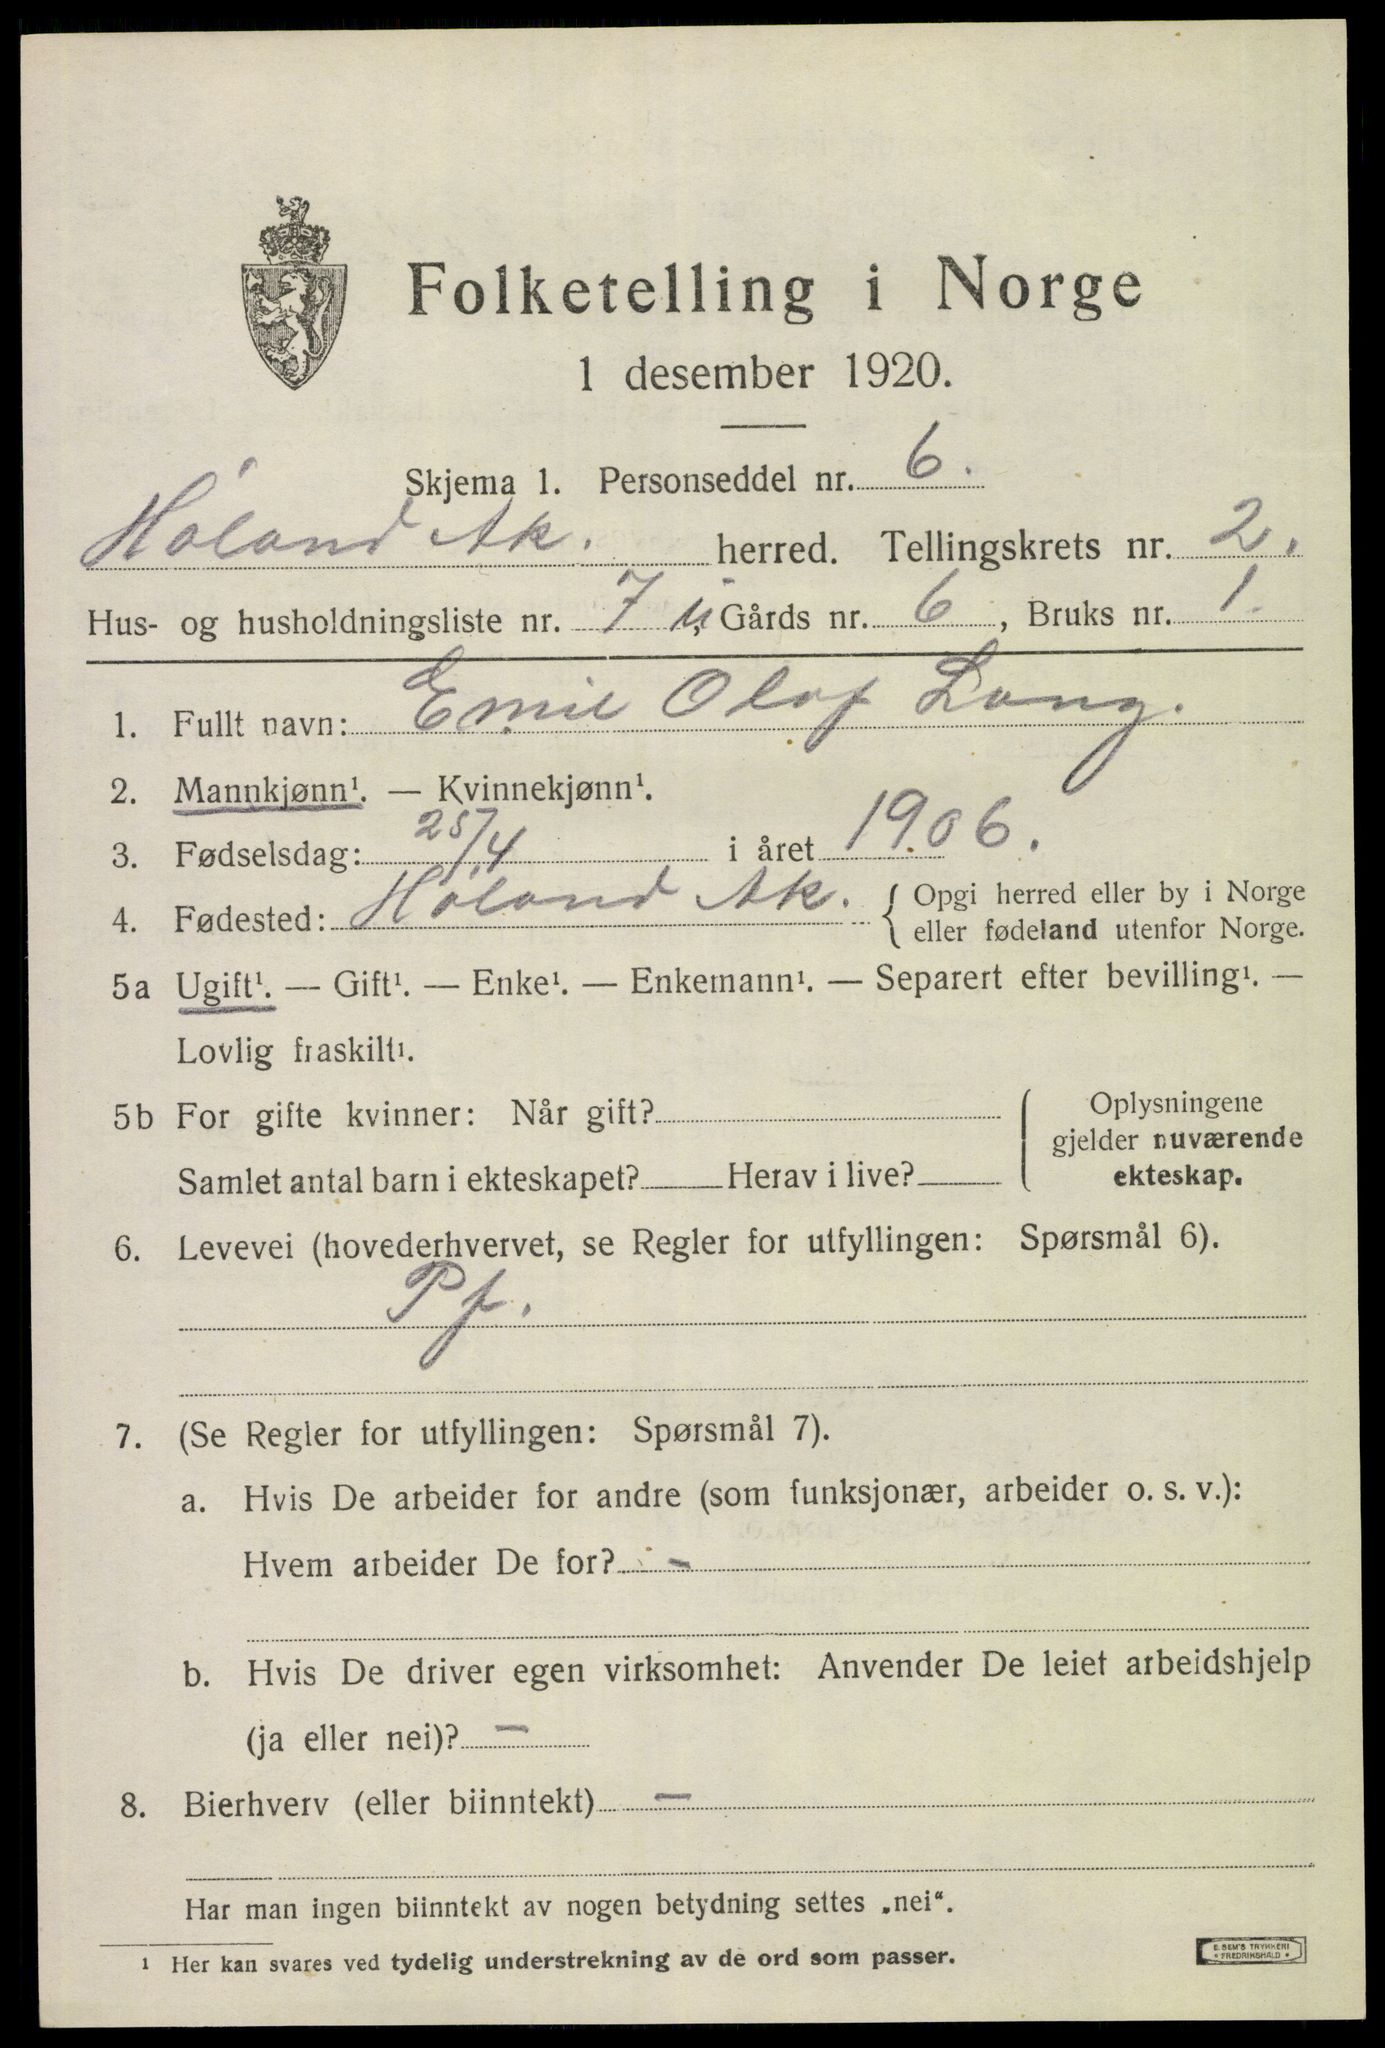 Folketelling i Norge
1 desember 1920.
Skjema 1. Personseddel nr. 6.
Høland Ak. herred. Tellingskrets nr. 2.
Hus- og husholdningsliste nr. 7 , Gårds nr. 6 , Bruks nr. 1.
1. Fullt navn: Emil Olaf Lang.
2. Mannkjønn¹. — Kvinnekjønn¹.
3. Fødselsdag: 25/4 i året 1906.
4. Fødested: Høland Ak. { Opgi herred eller by i Norge
eller fødeland utenfor Norge.
5a Ugift¹. — Gift¹. — Enke¹. — Enkemann¹. — Separert efter bevilling¹. —
Lovlig fraskilt¹.
5b For gifte kvinner: Når gift? Oplysningene
gjelder nuværende
Samlet antal barn i ekteskapet? Herav i live? ekteskap.
6. Levevei (hovederhvervet, se Regler for utfyllingen: Spørsmål 6).
Pf.
7. (Se Regler for utfyllingen: Spørsmål 7).
a. Hvis De arbeider for andre (som funksjonær, arbeider o. s. v.):
Hvem arbeider De for? —
b. Hvis De driver egen virksomhet: Anvender De leiet arbeidshjelp
(ja eller nei)? —
8. Bierhverv (eller biinntekt) —
Har man ingen biinntekt av nogen betydning settes „nei“.
¹ Her kan svares ved tydelig understrekning av de ord som passer.
E. SEM'S TRYKKERI
* FREDRIKSHALD *